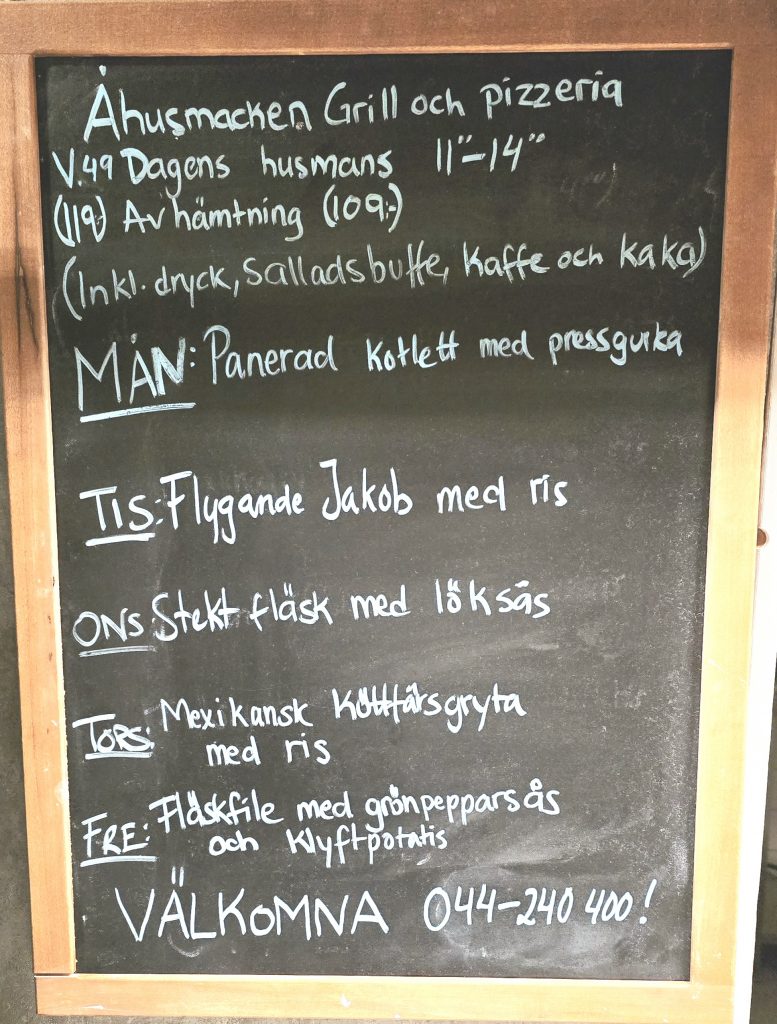 Åhusmacken Grill och pizzeria
V.49 Dagens husmans 11"-14"
(119) Avhämtning (109:-)
(Inkl. dryck, Salladsbuffe, Kaffe och kaka)
MÅN: Panerad kotlett med pressgurka
TIS: Flygande Jakob med ris
ONS Stekt fläsk med löksås
TORS: Mexikansk Köttfärsgryta
med ris
FRE: Fläskfile med grönpepparsås
och Klyftpotatis
VÄLKOMNA 044-240 400!